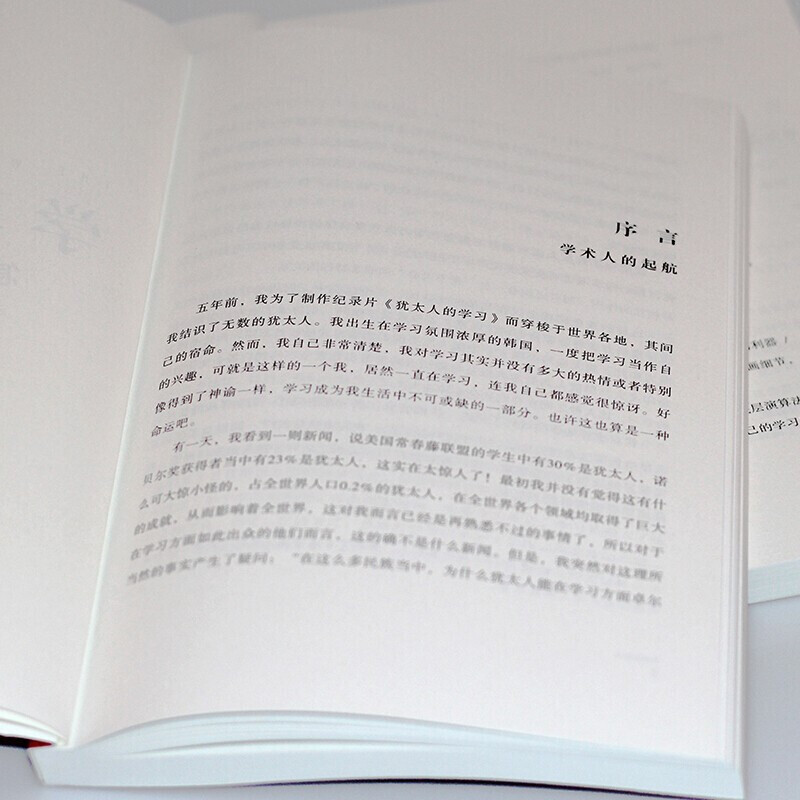 序 言
学术人的起航
五年前，我为了制作纪录片《犹太人的学习》而穿梭于世界各地，其间
我结识了无数的犹太人。我出生在学习氛围浓厚的韩国，一度把学习当作自
己的宿命。然而，我自己非常清楚，我对学习其实并没有多大的热情或者特别
的兴趣，可就是这样的一个我，居然一直在学习，连我自己都感觉很惊讶。好
像得到了神谕一样，学习成为我生活中不可或缺的一部分。也许这也算是一种
命运吧。
有一天，我看到一则新闻，说美国常春藤联盟的学生中有30%是犹太人，诺
贝尔奖获得者当中有23%是犹太人，这实在太惊人了！最初我并没有觉得这有什
么可大惊小怪的，占全世界人口0.2%的犹太人，在全世界各个领域均取得了巨大
的成就，从而影响着全世界，这对我而言已经是再熟悉不过的事情了，所以对于
在学习方面如此出众的他们而言，这的确不是什么新闻。但是，我突然对这理所
当然的事实产生了疑问：“在这么多民族当中，为什么犹太人能在学习方面卓尔
利器 /
细节，
层演算法
己的学习